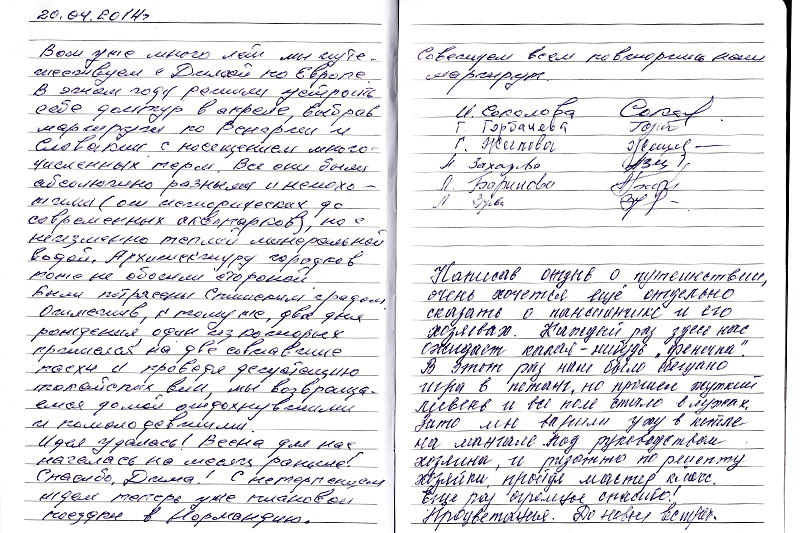 20.04.2014г
Вот уже много лет мы путе-
шествуем с Димой по Европе.
В этом году решили устроить
себе долгтур в апреле, выбрав
маршруты по Венгрии и
Словакии с посещением много-
численных терм. Все они были
абсолютно разными и непохо-
жими (от исторических до
современных аквапарков), но с
неизменно теплой минеральной
водой. Архитектуру городков
тоже не обошли стороной
Были потрясены Спишским градом!
Отметив, к тому же, два дня
рождения, один из которых
пришелся на две совпавшие
пасхи и проведя дегустацию
токайских вин, мы возвраща-
емся домой отдохнувшими
и помолодевшими.
Идея удалась! Весна для нас
началась на месяц раньше!
Спасибо, Дима! С нетерпением
ждем теперь уже плановой
поездки в Нормандию.
Советуем всем повторить наш
маршрут.
И. Соколова
Г. Горбачева
Г. Жепилова
Л. Захарова
Л. Баринова
Л. Зуева
Написав отзыв о путешествии,
очень хочется ещё отдельно
сказать о пансиончике и его
хозяевах. Каждый раз здесь нас
ожидает какая-нибудь "фенечка".
В этот раз нам было обещано
игра в петанг, но прошел жуткий
ливень и все поле стало в лужах.
Зато мы варили уху в котле
на мангале под руководством
хозяина, и ризотто по рецепту
хозяйки, пройдя мастер класс.
Еще раз огромное спасибо!
Процветания. До новых встреч.